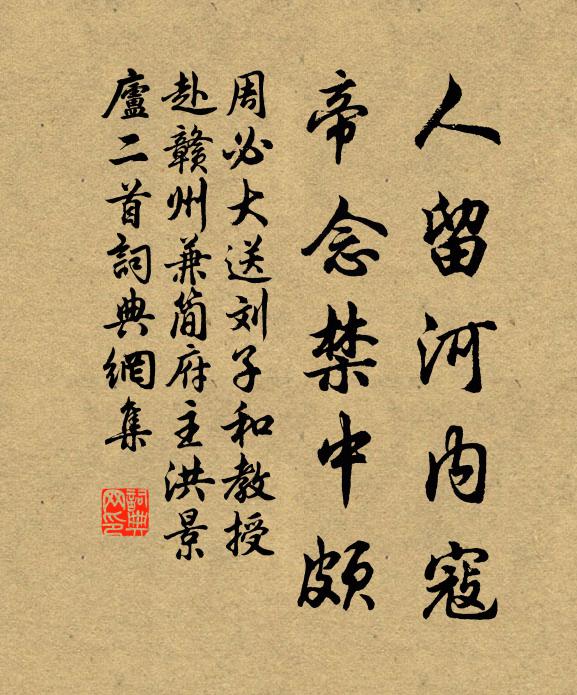 人留河内寇
帝念禁中頗
周必大送刘子和教授
赴赣州兼簡府主洪景
廬二首詞典網集
詞典
网印